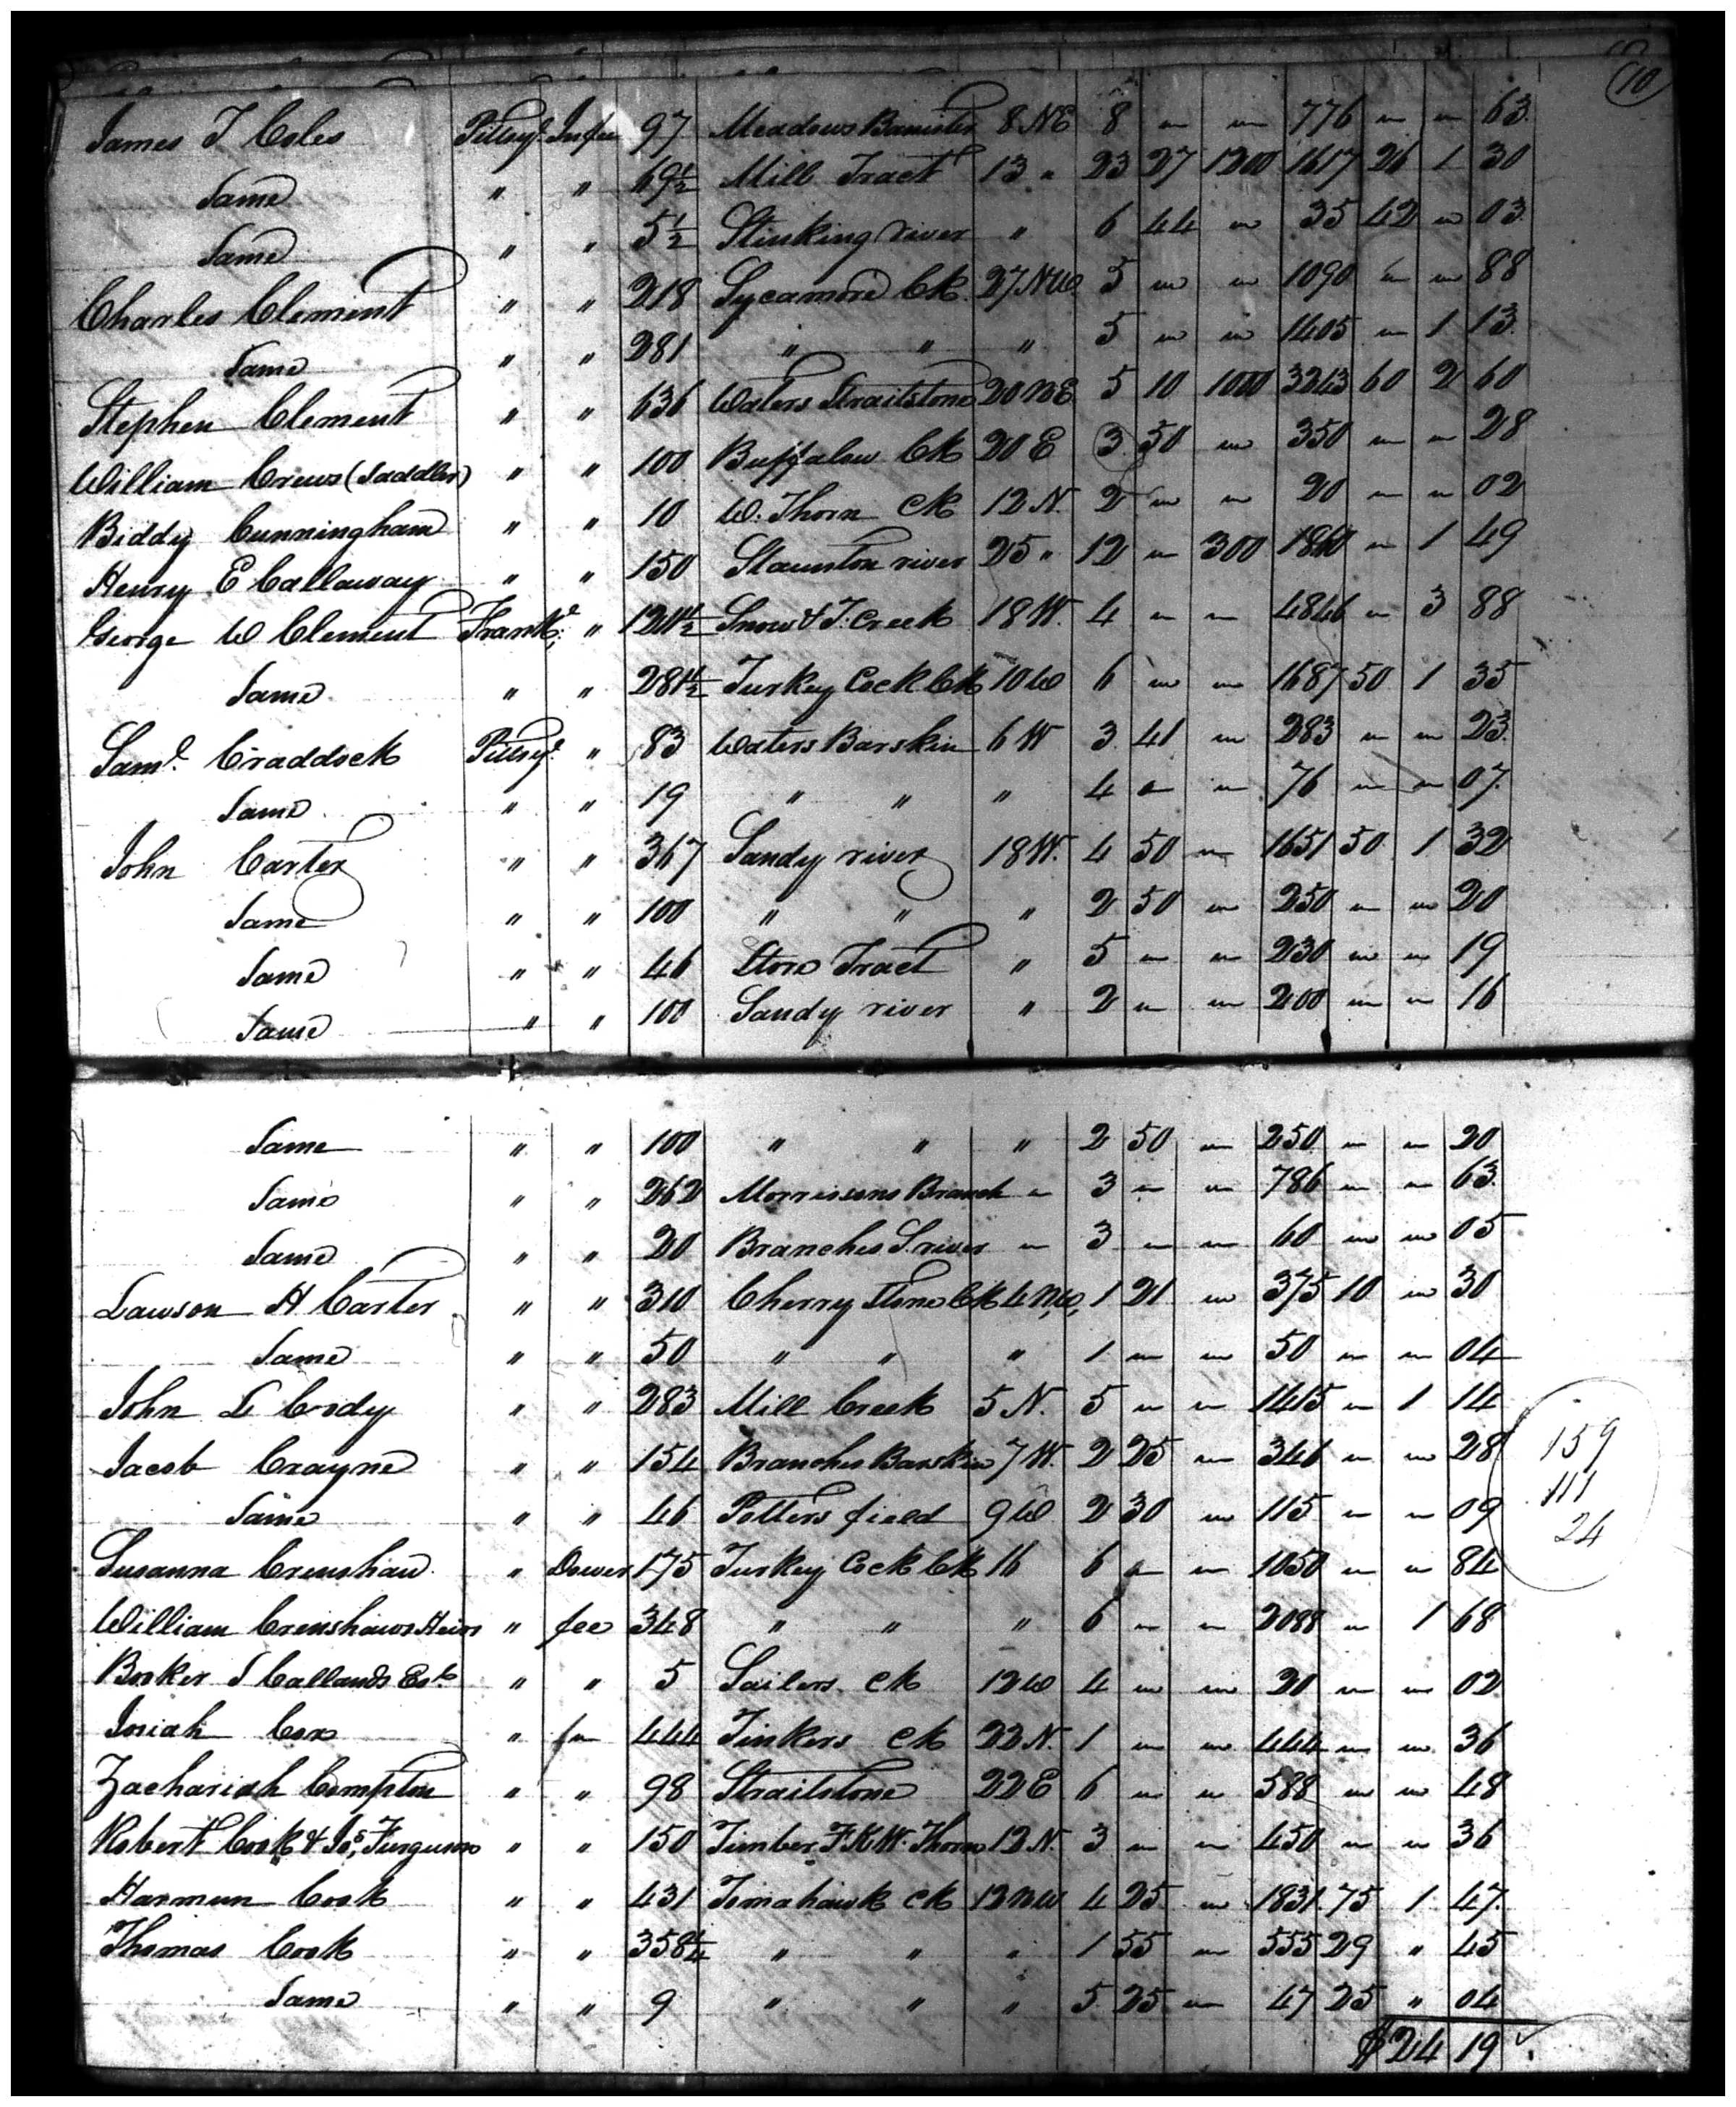 10
James T Coles Pittsyl In fee 97 Meadows Banister 8 NE 8 " " 776 " " 63
Same " " 69½ Mill Tract 13 " 23 27 1200 1617 26 1 30
Same " " 5½ Stinking river " 6 44 " 35 42 " 03
Charles Clement " " 218 Sycamore Ck 27 NW 5 " " 1090 " " 88
Same " " 281 " " " 5 " " 1405 " 1 13
Stephen Clement " " 636 Waters Straitstone 20 NE 5 10 1000 3243 60 2 60
William Crews (Saddler) " " 100 Buffalow Ck 20 E 3 50 " 350 " " 28
Biddy Cunningham " " 10 W. Thorn Ck 12 N. 2 " " 20 " " 02
Henry E Callaway " " 150 Staunton river 25 " 12 " 300 " 1 49
George W Clement Frank " Snow & T. Creek 18 W. 4 " " 4846 " 3 88
Same " " Turkey Cock Ck 10 W 6 " " 1687 50 1 35
Saml. Craddock Pittsyl " 83 Waters Barskin 6 W 3 41 " 283 " " 23
Same " " 19 " " " 4 " " 76 " " 07
John Carter " " 367 Sandy river 18 W. 4 50 " 1651 50 1 32
Same " " 100 " " " 2 50 " 250 " " 20
Same " " 46 Store Tract " 5 " " 230 " " 19
Same " " 100 Sandy river " 2 " " 200 " " 16
Same " " 100 " " " 2 50 " 250 " " 20
Same " " 262 Morrisons Branch " 3 " " 786 " " 63
Same " " 20 Branches S. river " 3 " " 60 " " 05
Lawson H Carter " " 310 Cherry Stone Ck 4 NW, 1 21 " 375 10 " 30
Same " " 50 " " " 1 " " 50 " " 04
John L Cody " " 283 Mill Creek 5 N. 5 " " 1415 " 1 14
Jacob Crayne " " 154 Branches Barskin 7 W. 2 25 " 346 " " 28
Same " " 46 Potters field 9 W 2 30 " 115 " " 09
159
111
24
Susanna Crenshaw " Dower 175 Turkey Cock Ck 16 6 " " 1050 " " 84
William Crenshaws Heirs " fee 348 " " " 6 " " 2088 " 1 68
Booker S Callands Est. " " 5 Sailors Ck 12 W 4 " " 20 " " 02
Josiah Cox " " 444 Tinkers Ck 22 N. 1 " " 444 " " 36
Zachariah Compton " " 98 Straitstone 22 E 6 " " 588 " " 48
Robert Cook & Jos. Ferguson " " 150 Timber F. K W. Thorn 12 N. 3 " " 450 " " 36
Harmun Cook " " 431 Tomahawk Ck 12 NW 4 25 " 1831 75 1 47
Thomas Cook " " 358¼ " " " 1 55 " 555 29 " 45
Same " " 9 " " " 5 25 " 47 25 " 04
$24 19